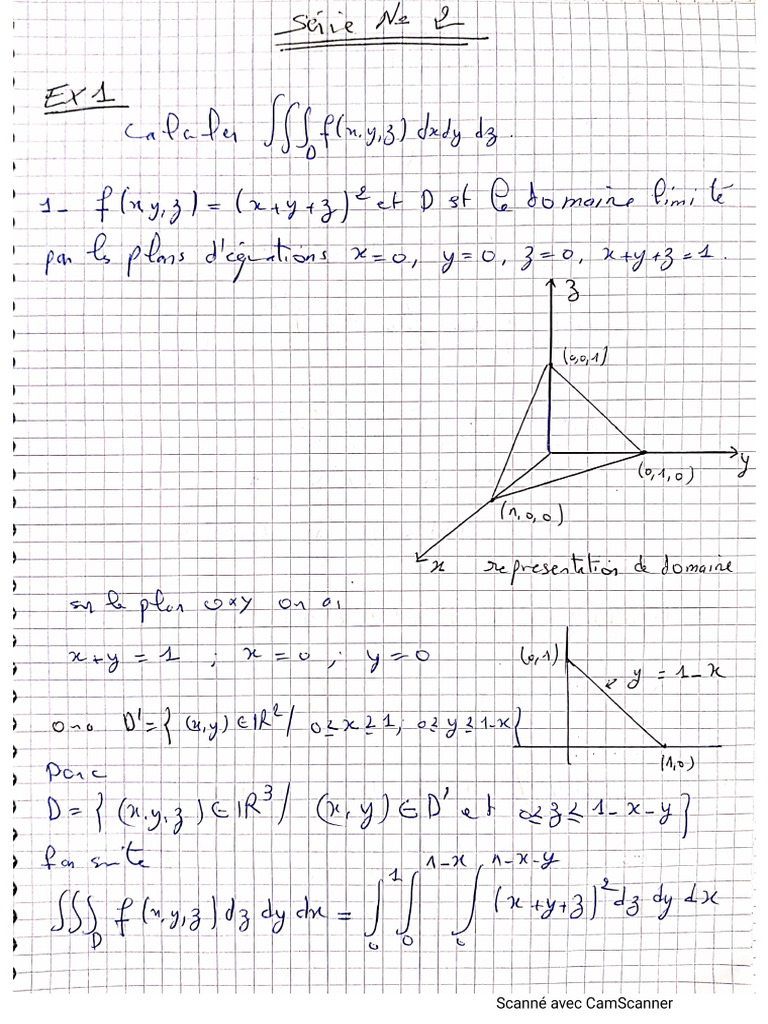 Série No 2
EX1
Calculer ∫∫∫_D f(x,y,z) dxdy dz.
1- f(x,y,z) = (x+y+z)² et D est le domaine limité
par les plans d'équations x=0, y=0, z=0, x+y+z=1.
z
(0,0,1)
y
(0,1,0)
(1,0,0)
x representation de domaine
sur le plan oxy on a,
x+y=1 ; x=0 ; y=0
(0,1) y = 1-x
ona D'={ (x,y) ∈ IR² / 0≥x≥1; 0≥y≥1-x}
(1,0)
Donc
D = { (x,y,z) ∈ IR³ / (x,y) ∈ D' et 0≤z≤1-x-y}
par suite
∫∫∫_D f(x,y,z) dz dy dx = ∫_0^1 ∫_0^{1-x} ∫_0^{1-x-y} (x+y+z)² dz dy dx
Scanné avec CamScanner